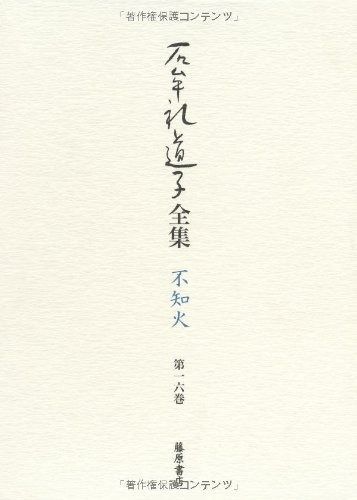 「著作権保護コンテンツ」
石牟礼道子
全集
不知火
第一六巻
藤原書店
「著作権保護コンテンツ」